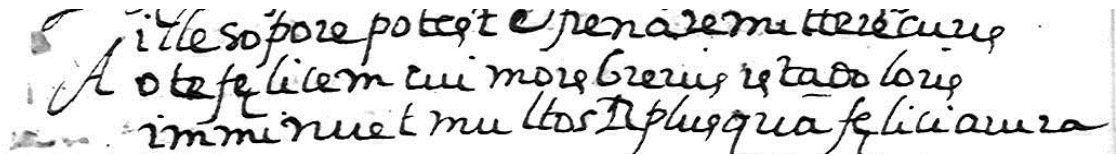 ille sopore potest & frena remittere curis
A o te fęlicem cui mors breuis ręta doloris
imminuet multos plus quā fęlicia rura